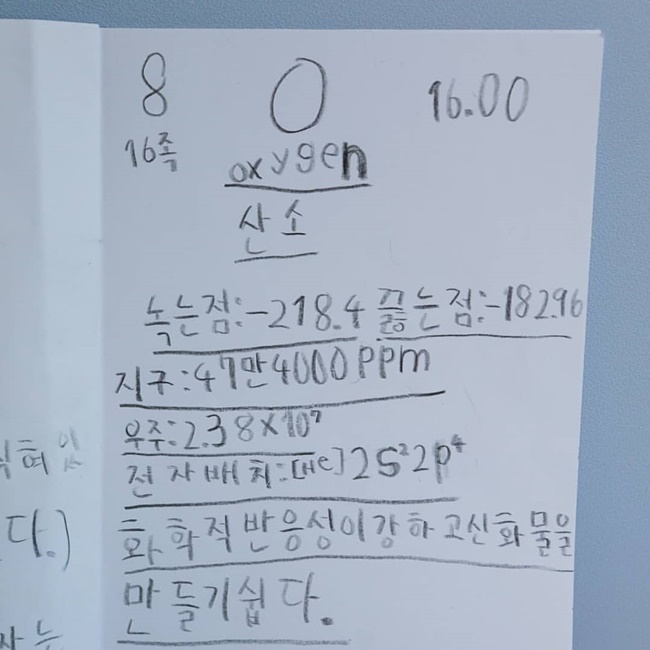 8 O 16.00
16족
oxygen
산소
녹는점:-218.4 끓는점:-182.96
지구:47만4000ppm
우주:2.38×10⁷
전자배치:[He]2S²2p⁴
화학적반응성이강하고신화물을
만들기쉽다.
다.)